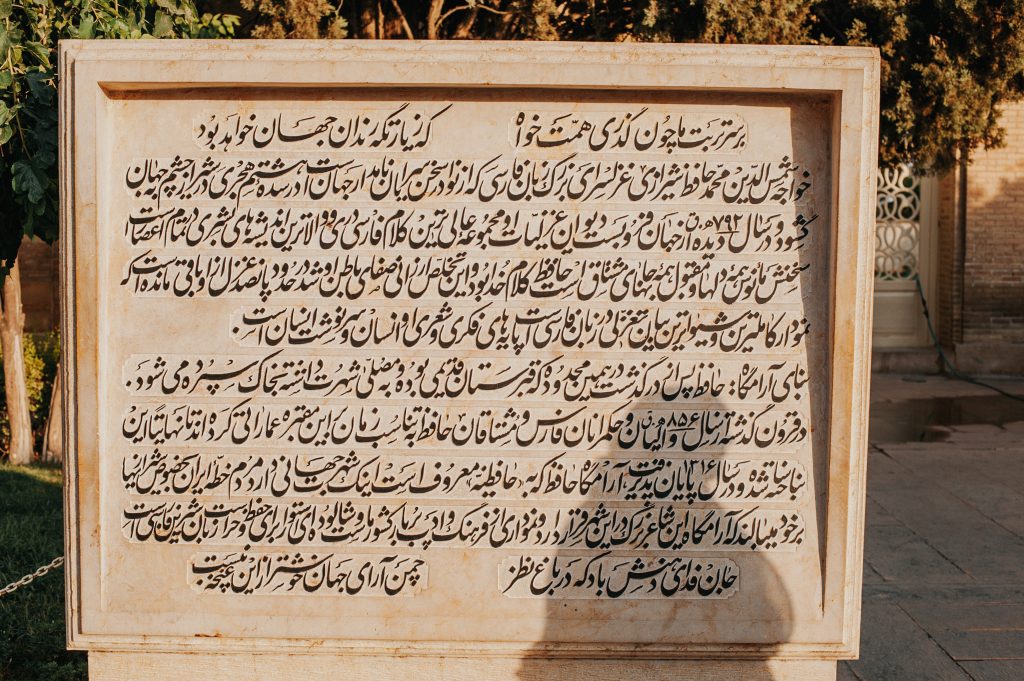 بر سر تربت ما چون گذری همّت خواه که زیارتگه رندان جهان خواهد بود
خواجه شمس الدّین محمّد حافظ شیرازی غزلسرای بزرگ زبان فارسی که از نوادر سخن سرایان نامدار جهان است در سده هشتم هجری در شیراز چشم به جهان
گشود و در سال ۷۹۲ ه.ق دیده از جهان فرو بست دیوان غزلیات او مجموعه عالی ترین کلام فارسی دری و والاترین اندیشه های بشری در تمام اعصار است
سخنش مانوس همه دلها و مقبول همه جانهای مشتاق است حافظ کلام خدا بود و این خاصه ارزانی صفای باطن او شد حدود پانصد غزل از او باقی مانده است که
نمودار کاملترین و شیواترین بیان تغزلی در زبان فارسی است با پایه های فکری و شعری از انسان و سرنوشت ایشان است.
بنای آرامگاه: حافظ پس از درگذشت در همین محدوده که قبرستان قدیمی بوده و به مصلّی شهرت داشته به خاک سپرده می شود.
در قرون گذشته از سال ۸۵۶ ه.ق والیان و حکمرانان فارس و مشتاقان حافظ به تناسب زمان بر این مقبره عماراتی کرده اند تا نهایتاً این
بنا ساخته شده و در سال ۱۳۱۶ پایان پذیرفت آرامگاه حافظ که به «حافظیّه» معروف است اینک شهرت جهانی دارد مردم خطه ایران بخصوص شیرازیها
بر خود میبالند که آرامگاه این شاعر بزرگ در این شهر قرار دارد و نموداری از فرهنگ و ادب پربار کشور ماست و شالوده ای استوار برای حفظ و حراست زبان شیرین فارسی است
جان فدای دهنش باد که در باغ نظر چمن آرای جهان خوشتر از این غنچه نبست